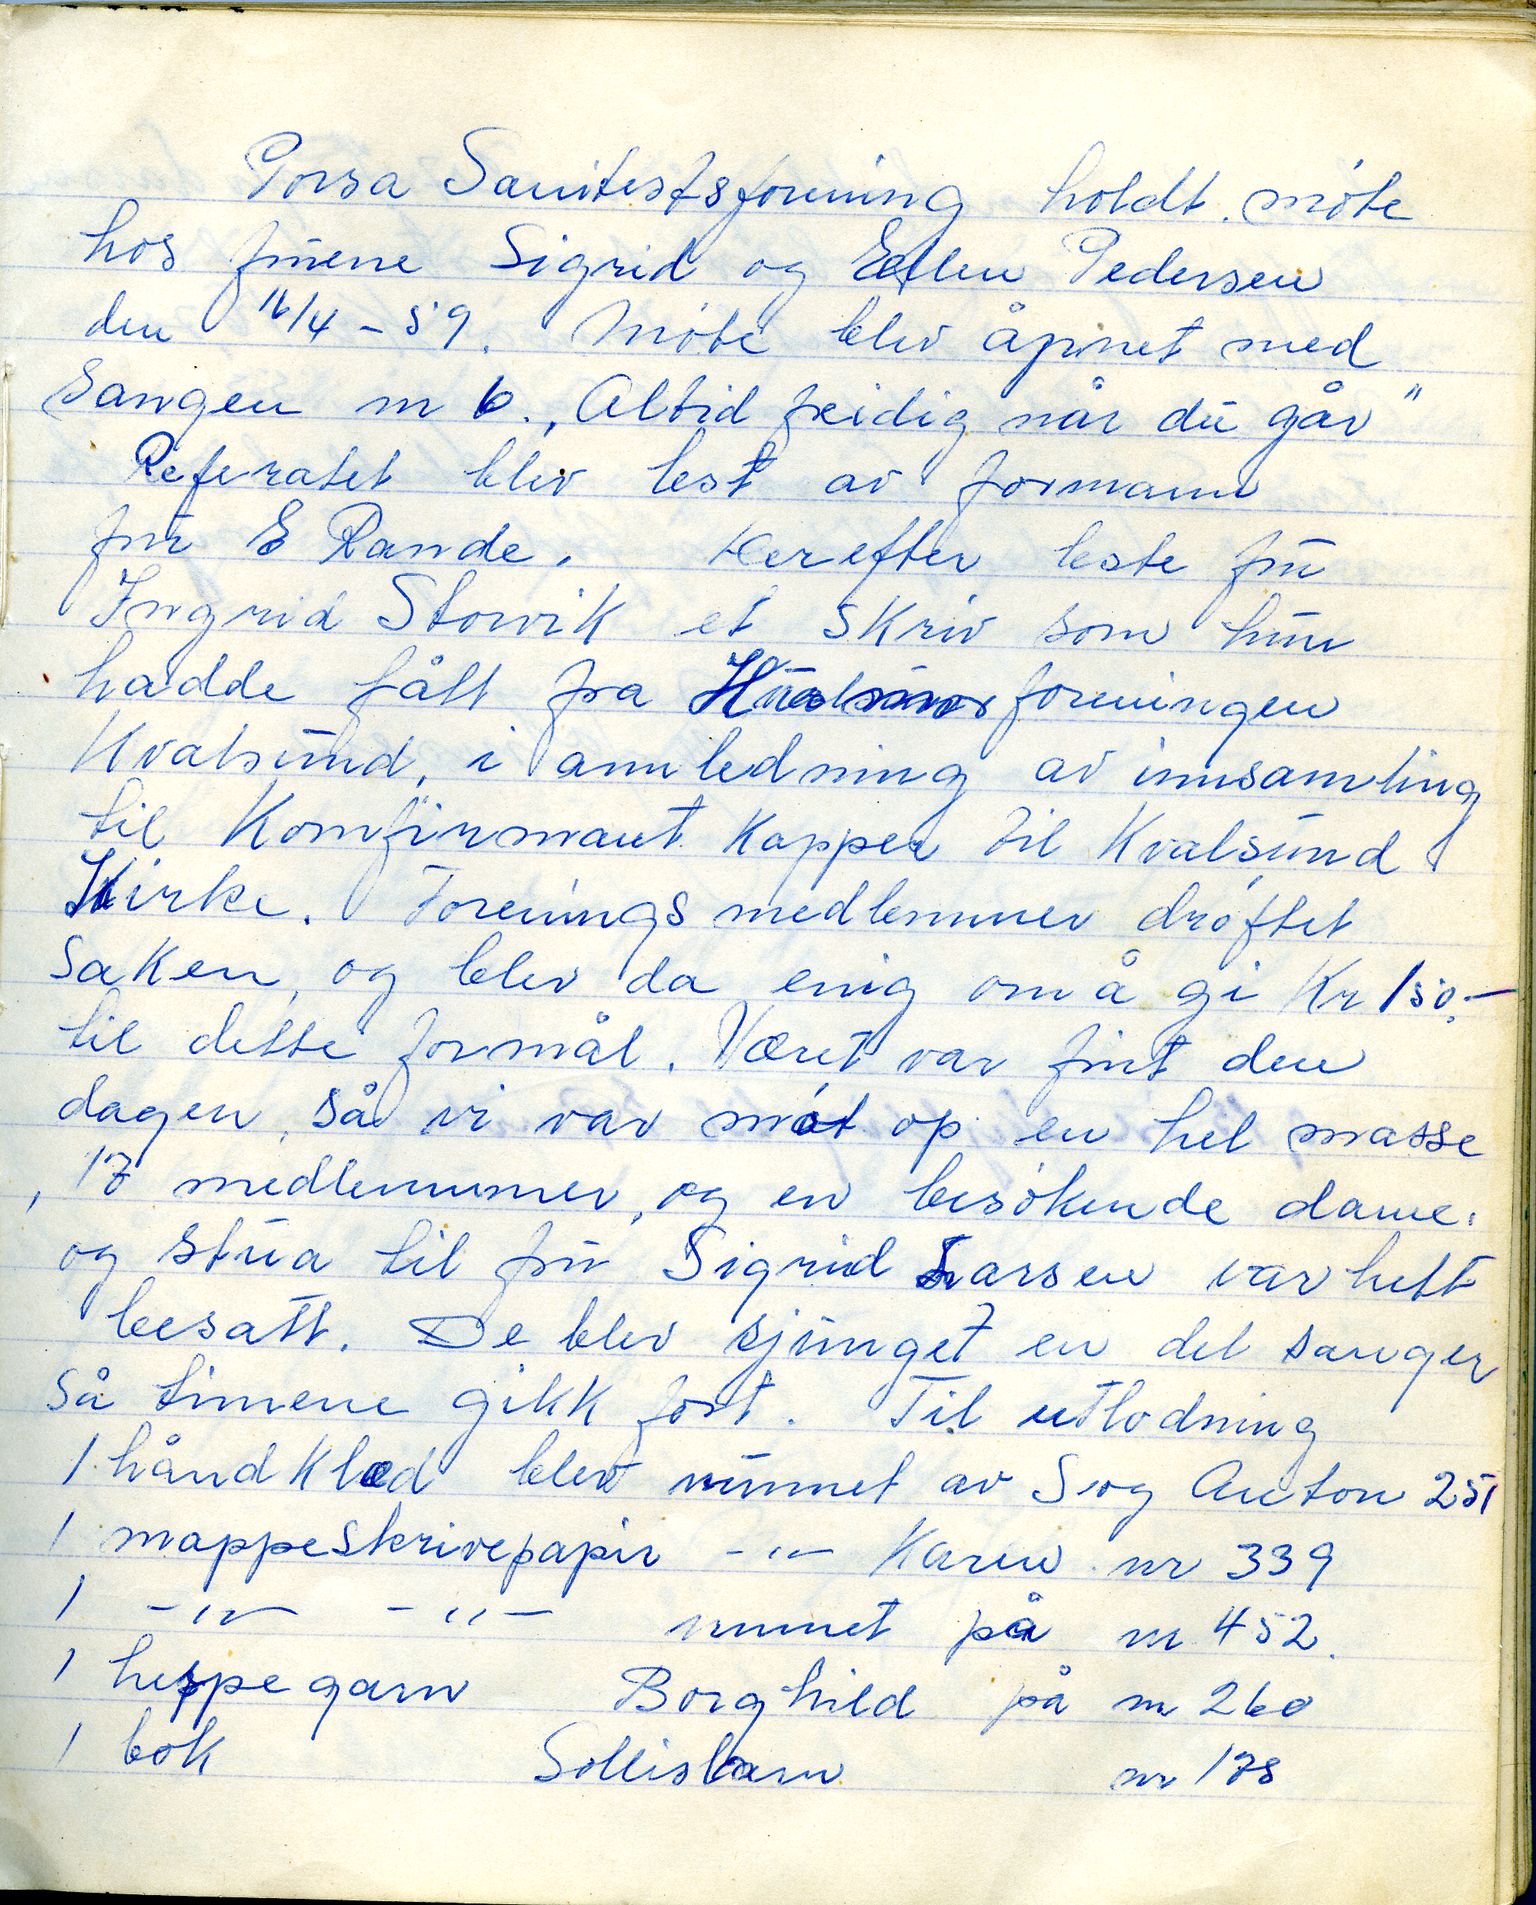 Porsa Sanitetsforening holdt møte
hos fruene Sigrid og Ellen Pedersen
den 16/4 - 59. Møte blev åpnet med
Sangen nr 6. „Altid freidig når du går"
Referatet blev lest av formann
fru E Rande. Derefter leste fru
Ingrid Storvik et skriv som hun
hadde fått fra Husmorforeningen
Kvalsund, i annledning av innsamling
til Konfirmant Kapper til Kvalsund
Kirke. Foreningsmedlemmer drøftet
saken, og blev da enig om å gi Kr 150,-
til dette formål. Været var fint den
dagen, så vi var møt op en hel masse
, 17 medlemmer, og en besøkende dame.
og stua til fru Sigrid Larsen var helt
besatt. De blev sjunget en del sanger
så timene gikk fort. Til utlodning
1 håndklæd blev vunnet av Svog Anton 251
1 mappe skrivepapir -"- Karen nr 339
1 -"- -"- vunnet på nr 452.
1 hespe garn Borghild på nr 260
1 bok Sollisbarn nr 178